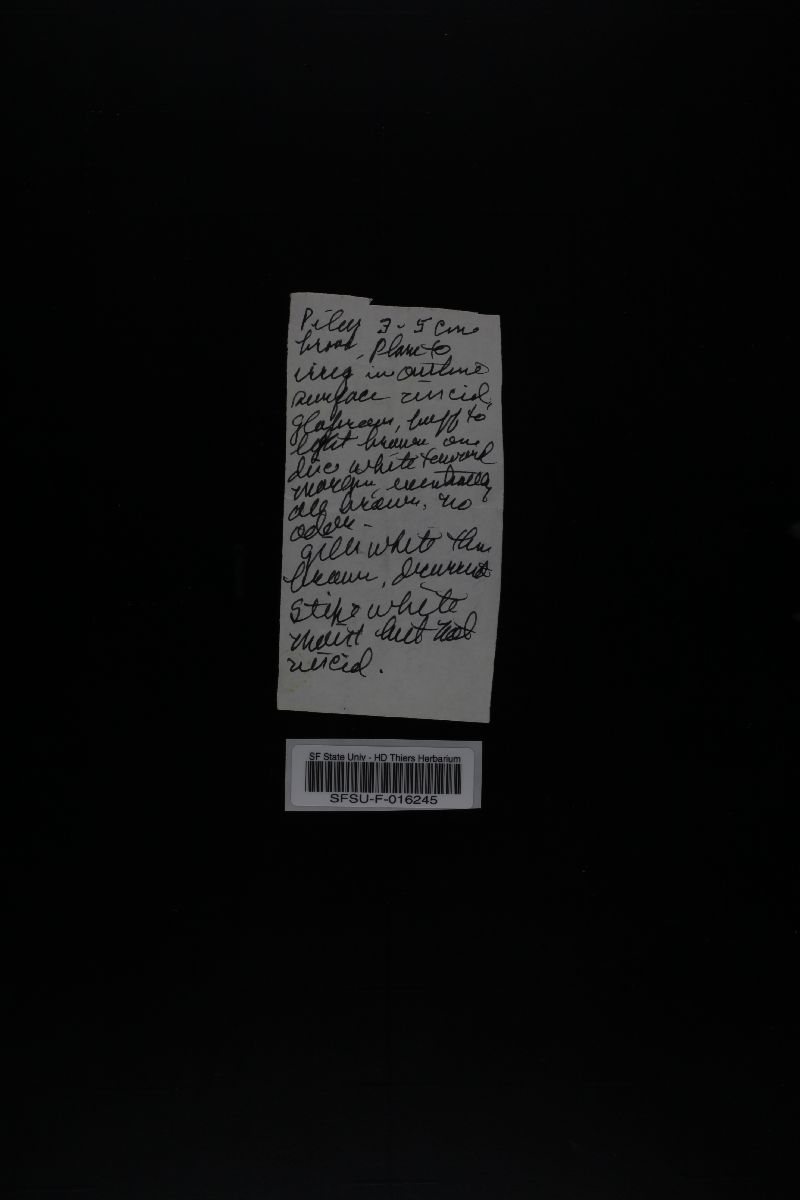 Pileus 3-5 cm
broad, Plane to
irreg in outline
surface viscid,
glabrous, buff to
light brown on
disc white toward
margin, eventually
all brown, no
odor -
gills white then
brown, decurrent
Stipe white
moist but not
viscid.
SF State Univ - HD Thiers Herbarium
SFSU-F-016245